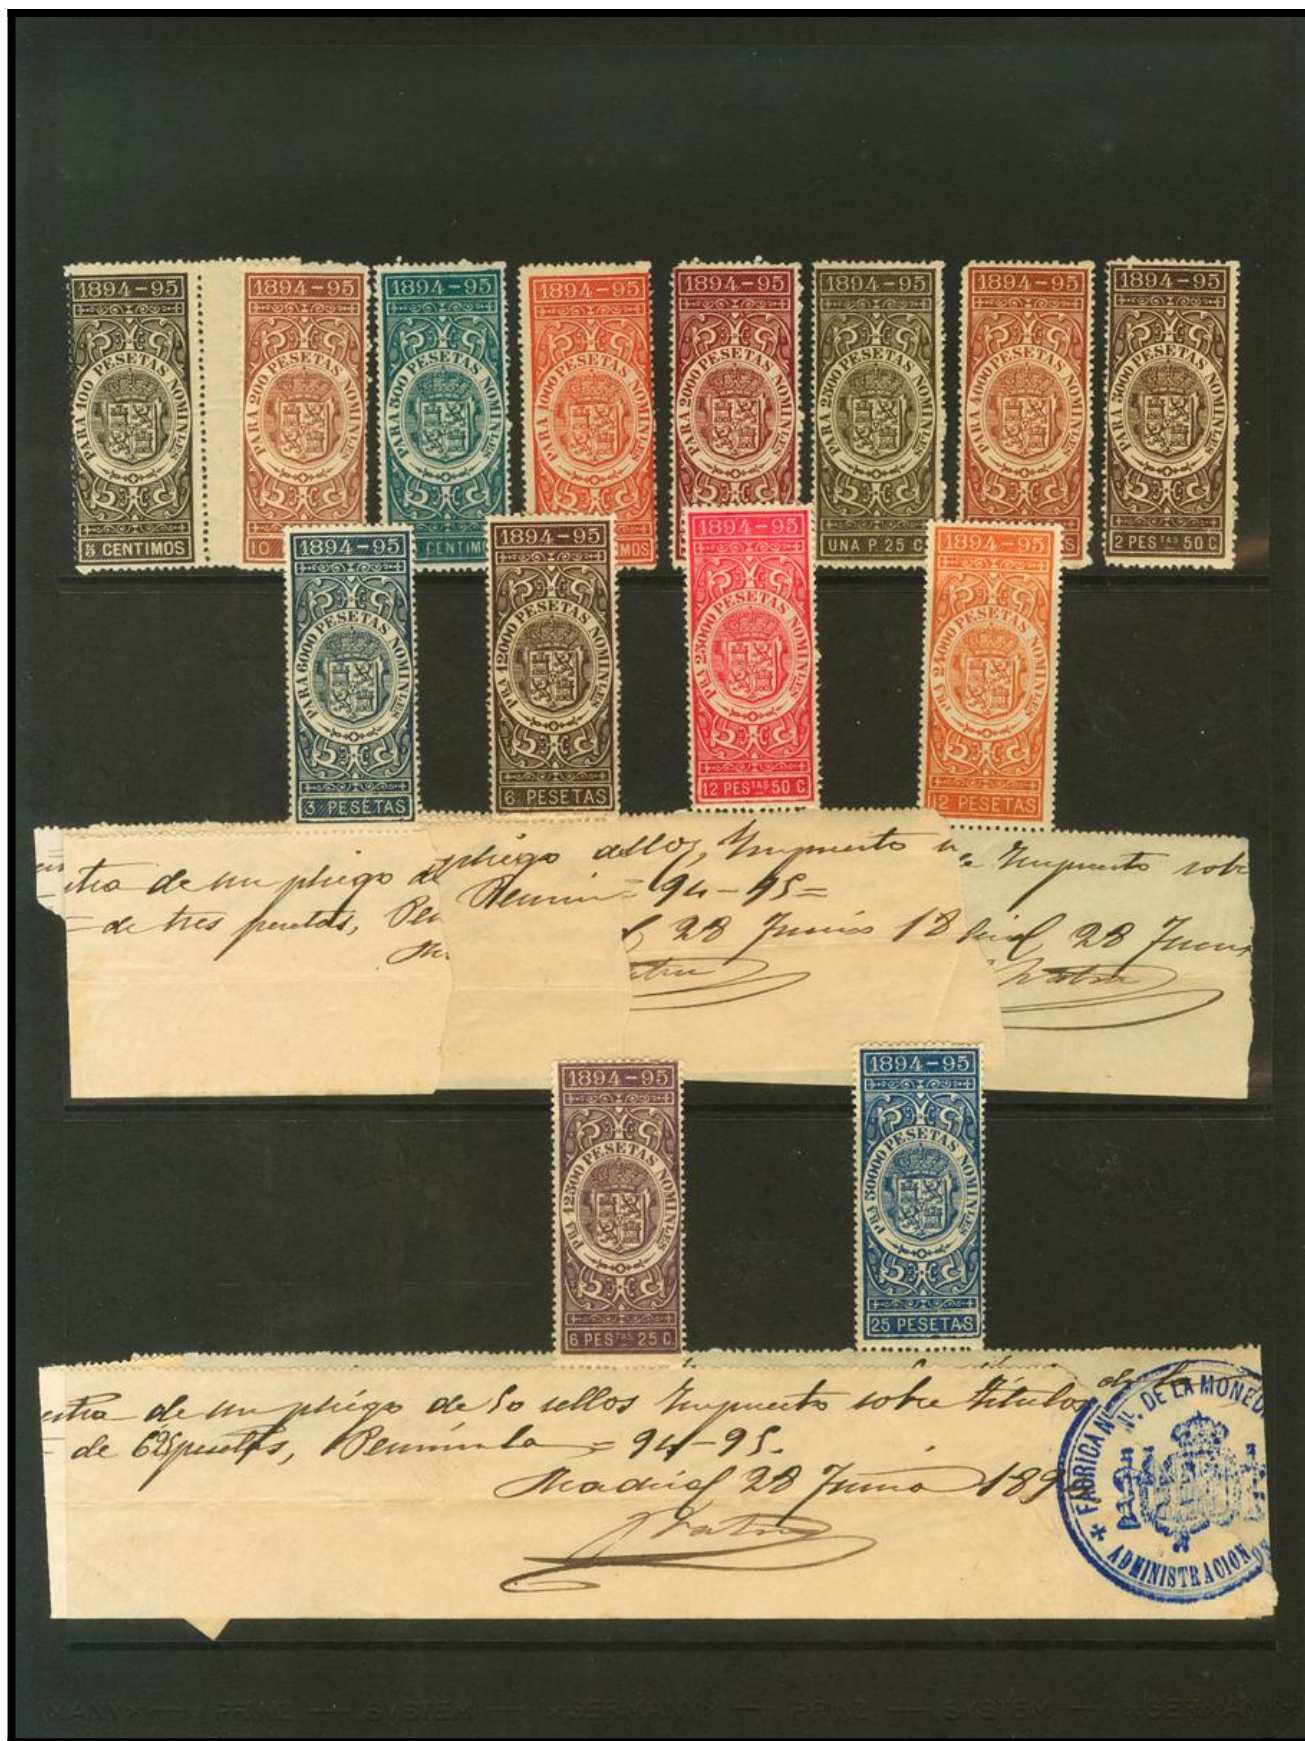 1894-95
PARA 100 PESETAS NOMINLES
5 CENTIMOS
1894-95
PARA 200 PESETAS NOMINLES
10
1894-95
PARA 500 PESETAS NOMINLES
CENTIM
1894-95
PARA 1000 PESETAS NOMINLES
MOS
1894-95
PARA 2000 PESETAS NOMINLES
1894-95
PARA 2500 PESETAS NOMINLES
UNA P. 25 C
1894-95
PARA 4000 PESETAS NOMINLES
S
1894-95
PARA 5000 PESETAS NOMINLES
2 PESTAS 50 C
1894-95
PARA 6000 PESETAS NOMINLES
3 PESETAS
1894-95
PRA 12000 PESETAS NOMINLES
6 PESETAS
1894-95
PRA 25000 PESETAS NOMINLES
12 PESTAS 50 C
1894-95
PRA 24000 PESETAS NOMINLES
12 PESETAS
stra de un pliego d
= de tres pesetas, Pen
pliego
Penin = 94-95=
Impuesto
28 Junio 18
Impuesto sobr
drid 28 Juni
1894-95
PRA 12500 PESETAS NOMINLES
6 PESTAS 25 C.
1894-95
PRA 50000 PESETAS NOMINLES
25 PESETAS
estra de un pliego de 50 sellos Impuesto sobre titulos de la
= de 6'25 pesetas, Peninsula = 94-95.
Madrid 28 Junio 189
FABRICA N
L. DE LA MONED
ADMINISTRACION
PRINZ — SYSTEM — GERMANY — PRINZ — SYSTEM — GERMANY